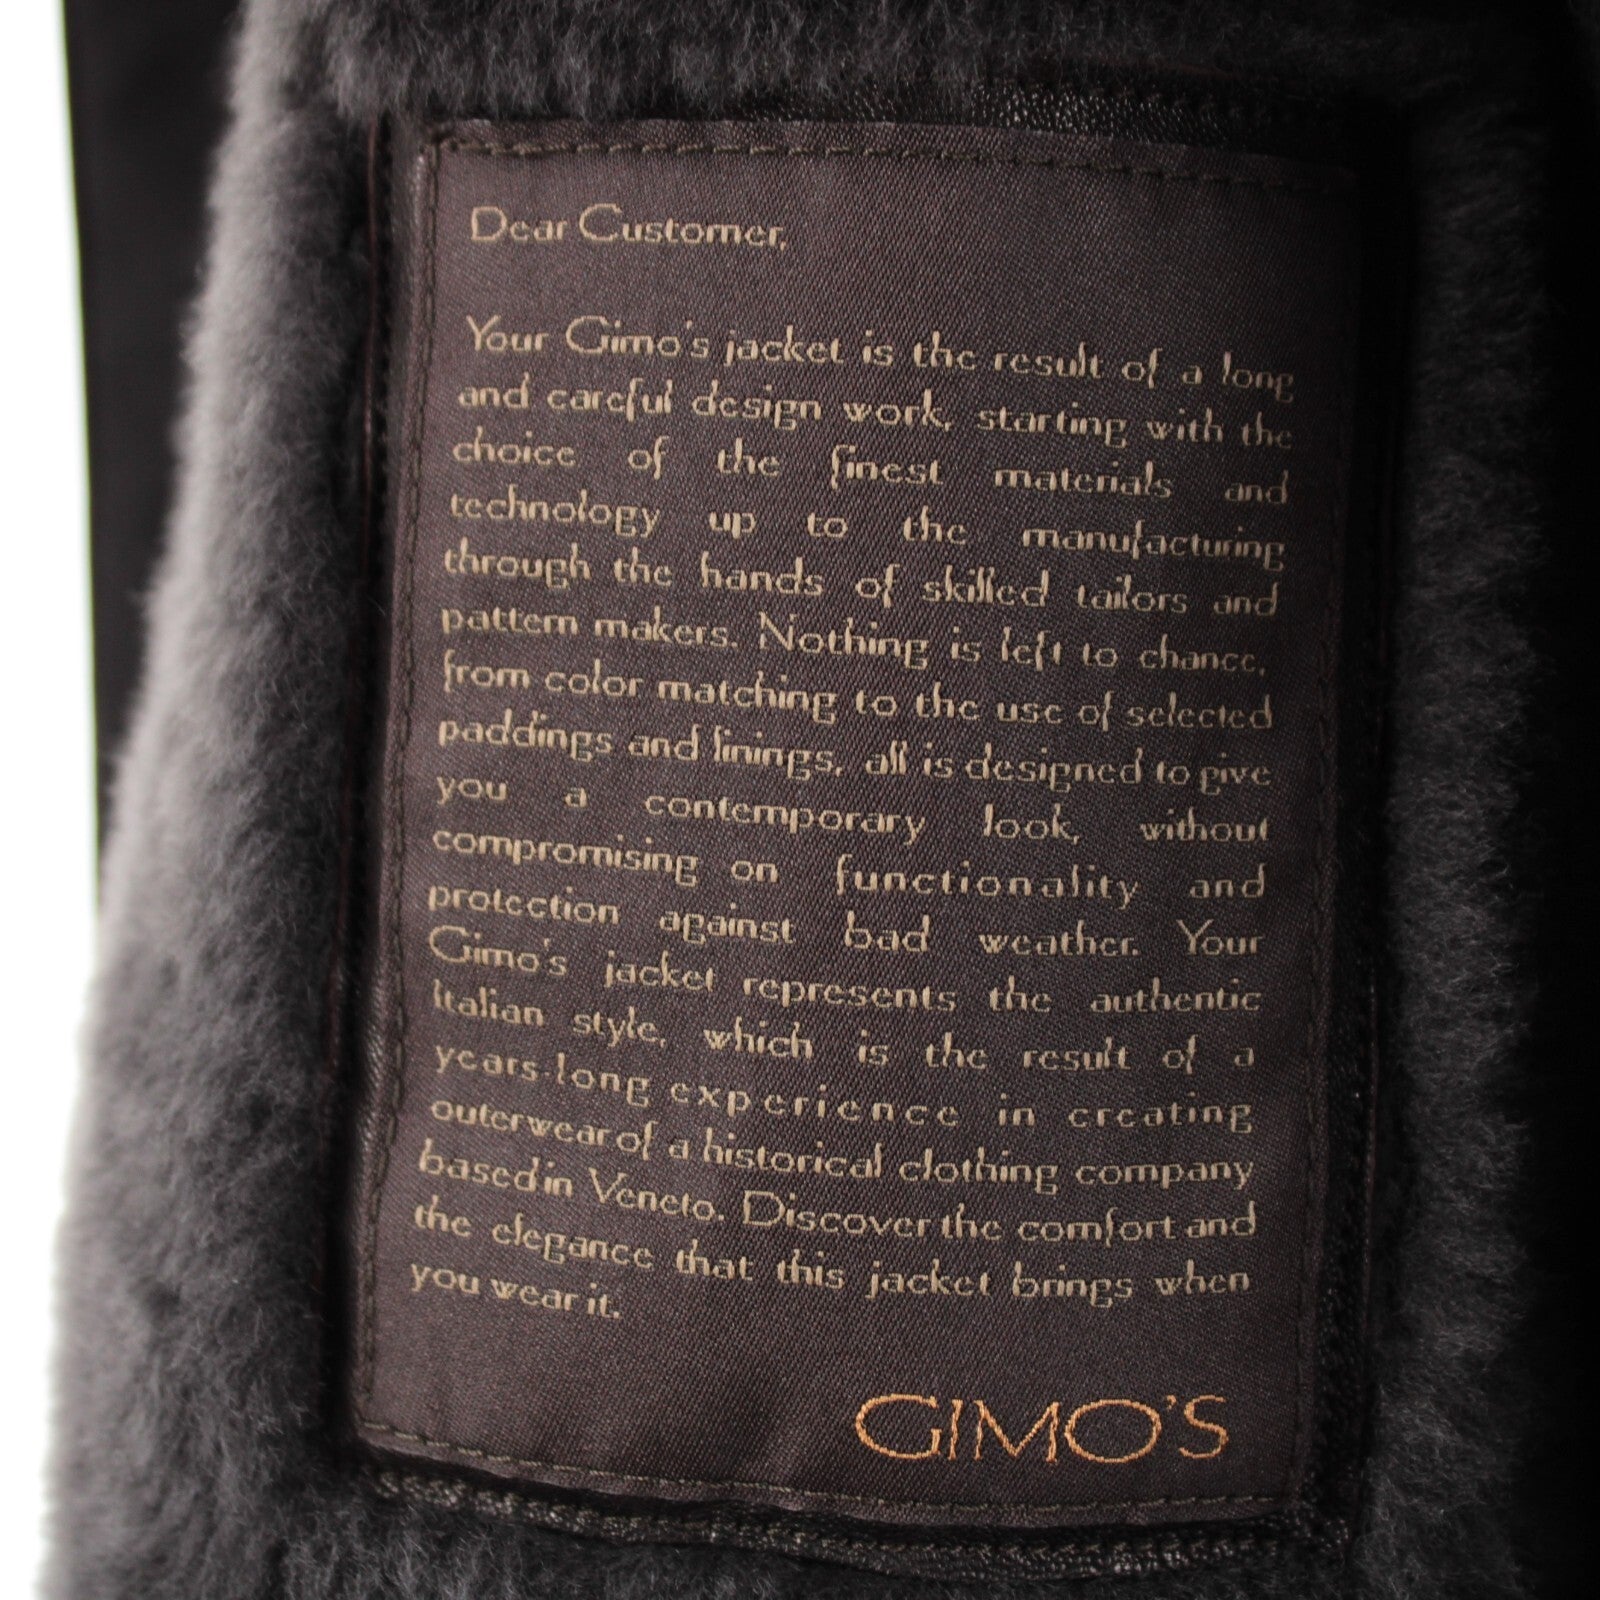 Dear Customer,
Your Gimo's jacket is the result of a long
and careful design work, starting with the
choice of the finest materials and
technology up to the manufacturing
through the hands of skilled tailors and
pattern makers. Nothing is left to chance,
from color matching to the use of selected
paddings and linings, all is designed to give
you a contemporary look, without
compromising on functionality and
protection against bad weather. Your
Gimo's jacket represents the authentic
Italian style, which is the result of a
years-long experience in creating
outerwear of a historical clothing company
based in Veneto. Discover the comfort and
the elegance that this jacket brings when
you wear it.
GIMO'S